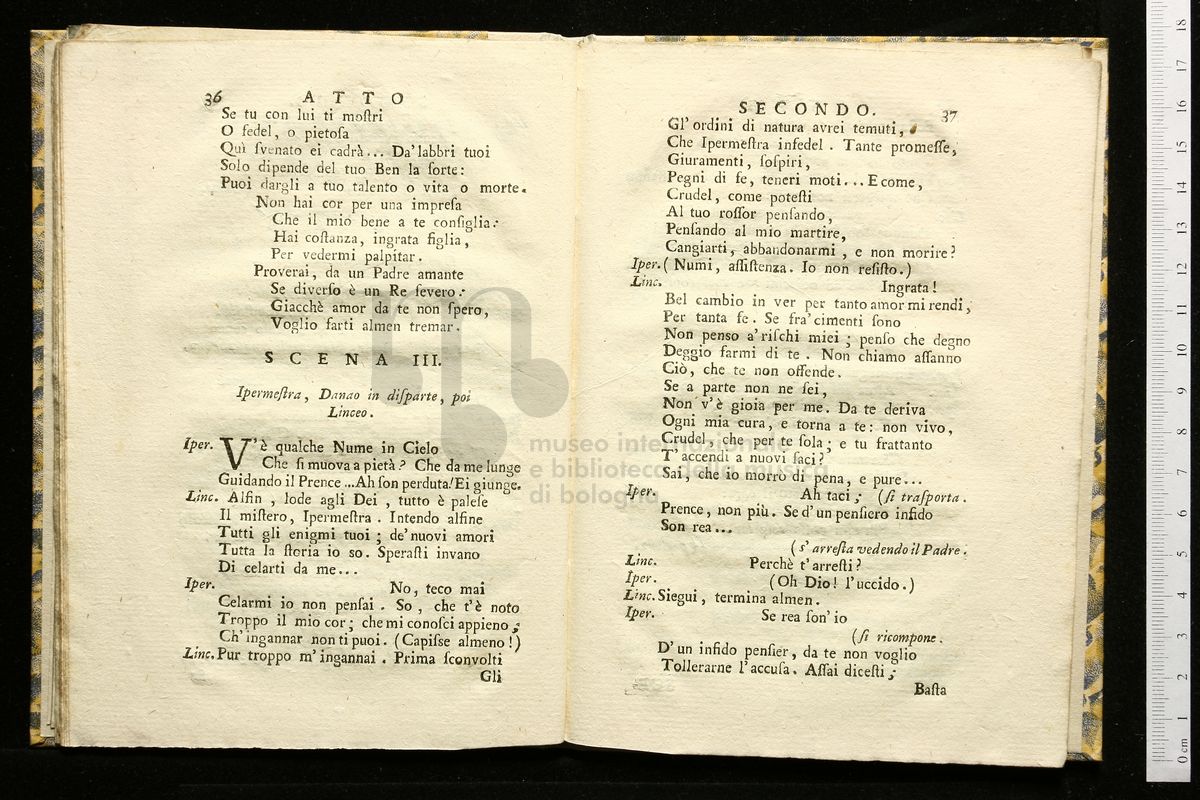 36 ATTO
Se tu con lui ti moſtri
O fedel, o pietoſa
Quì ſvenato ei cadrà... Da' labbri tuoi
Solo dipende del tuo Ben la ſorte:
Puoi dargli a tuo talento o vita o morte.
Non hai cor per una impreſa
Che il mio bene a te conſiglia:
Hai coſtanza, ingrata figlia,
Per vedermi palpitar.
Proverai, da un Padre amante
Se diverſo è un Re ſevero:
Giacchè amor da te non ſpero,
Voglio farti almen tremar.
SCENA III.
Ipermeſtra, Danao in diſparte, poi
Linceo.
Iper. V'è qualche Nume in Cielo
Che ſi muova a pietà? Che da me lunge
Guidando il Prence... Ah ſon perduta! Ei giunge.
Linc. Alfin, lode agli Dei, tutto è paleſe
Il miſtero, Ipermeſtra. Intendo alfine
Tutti gli enigmi tuoi; de' nuovi amori
Tutta la ſtoria io so. Speraſti invano
Di celarti da me...
Iper. No, teco mai
Celarmi io non penſai. So, che t'è noto
Troppo il mio cor; che mi conoſci appieno;
Ch' ingannar non ti puoi. (Capiſse almeno!)
Linc. Pur troppo m' ingannai. Prima ſconvolti
Gli
SECONDO. 37
Gl' ordini di natura avrei temuti,
Che Ipermeſtra infedel. Tante promeſſe,
Giuramenti, ſoſpiri,
Pegni di fe, teneri moti... E come,
Crudel, come poteſti
Al tuo roſſor penſando,
Penſando al mio martire,
Cangiarti, abbandonarmi, e non morire?
Iper. (Numi, aſſiſtenza. Io non reſiſto.)
Linc. Ingrata!
Bel cambio in ver per tanto amor mi rendi,
Per tanta fe. Se fra' cimenti ſono
Non penso a' riſchi miei; penſo che degno
Deggio farmi di te. Non chiamo affanno
Ciò, che te non offende.
Se a parte non ne ſei,
Non v'è gioia per me. Da te deriva
Ogni mia cura, e torna a te: non vivo,
Crudel, che per te ſola; e tu frattanto
T' accendi a nuovi faci?
Sai, che io morrò di pena, e pure...
Iper. Ah taci; (ſi traſporta.
Prence, non più. Se d' un penſiero infido
Son rea...
(s' arreſta vedendo il Padre.
Linc. Perchè t' arreſti?
Iper. (Oh Dio! l' uccido.)
Linc. Siegui, termina almen.
Iper. Se rea ſon' io
(ſi ricompone.
D' un infido penſier, da te non voglio
Tollerarne l' accuſa. Aſſai diceſti;
Baſta
museo internazionale
e biblioteca della musica
di bologna
0 cm 1 2 3 4 5 6 7 8 9 10 11 12 13 14 15 16 17 18